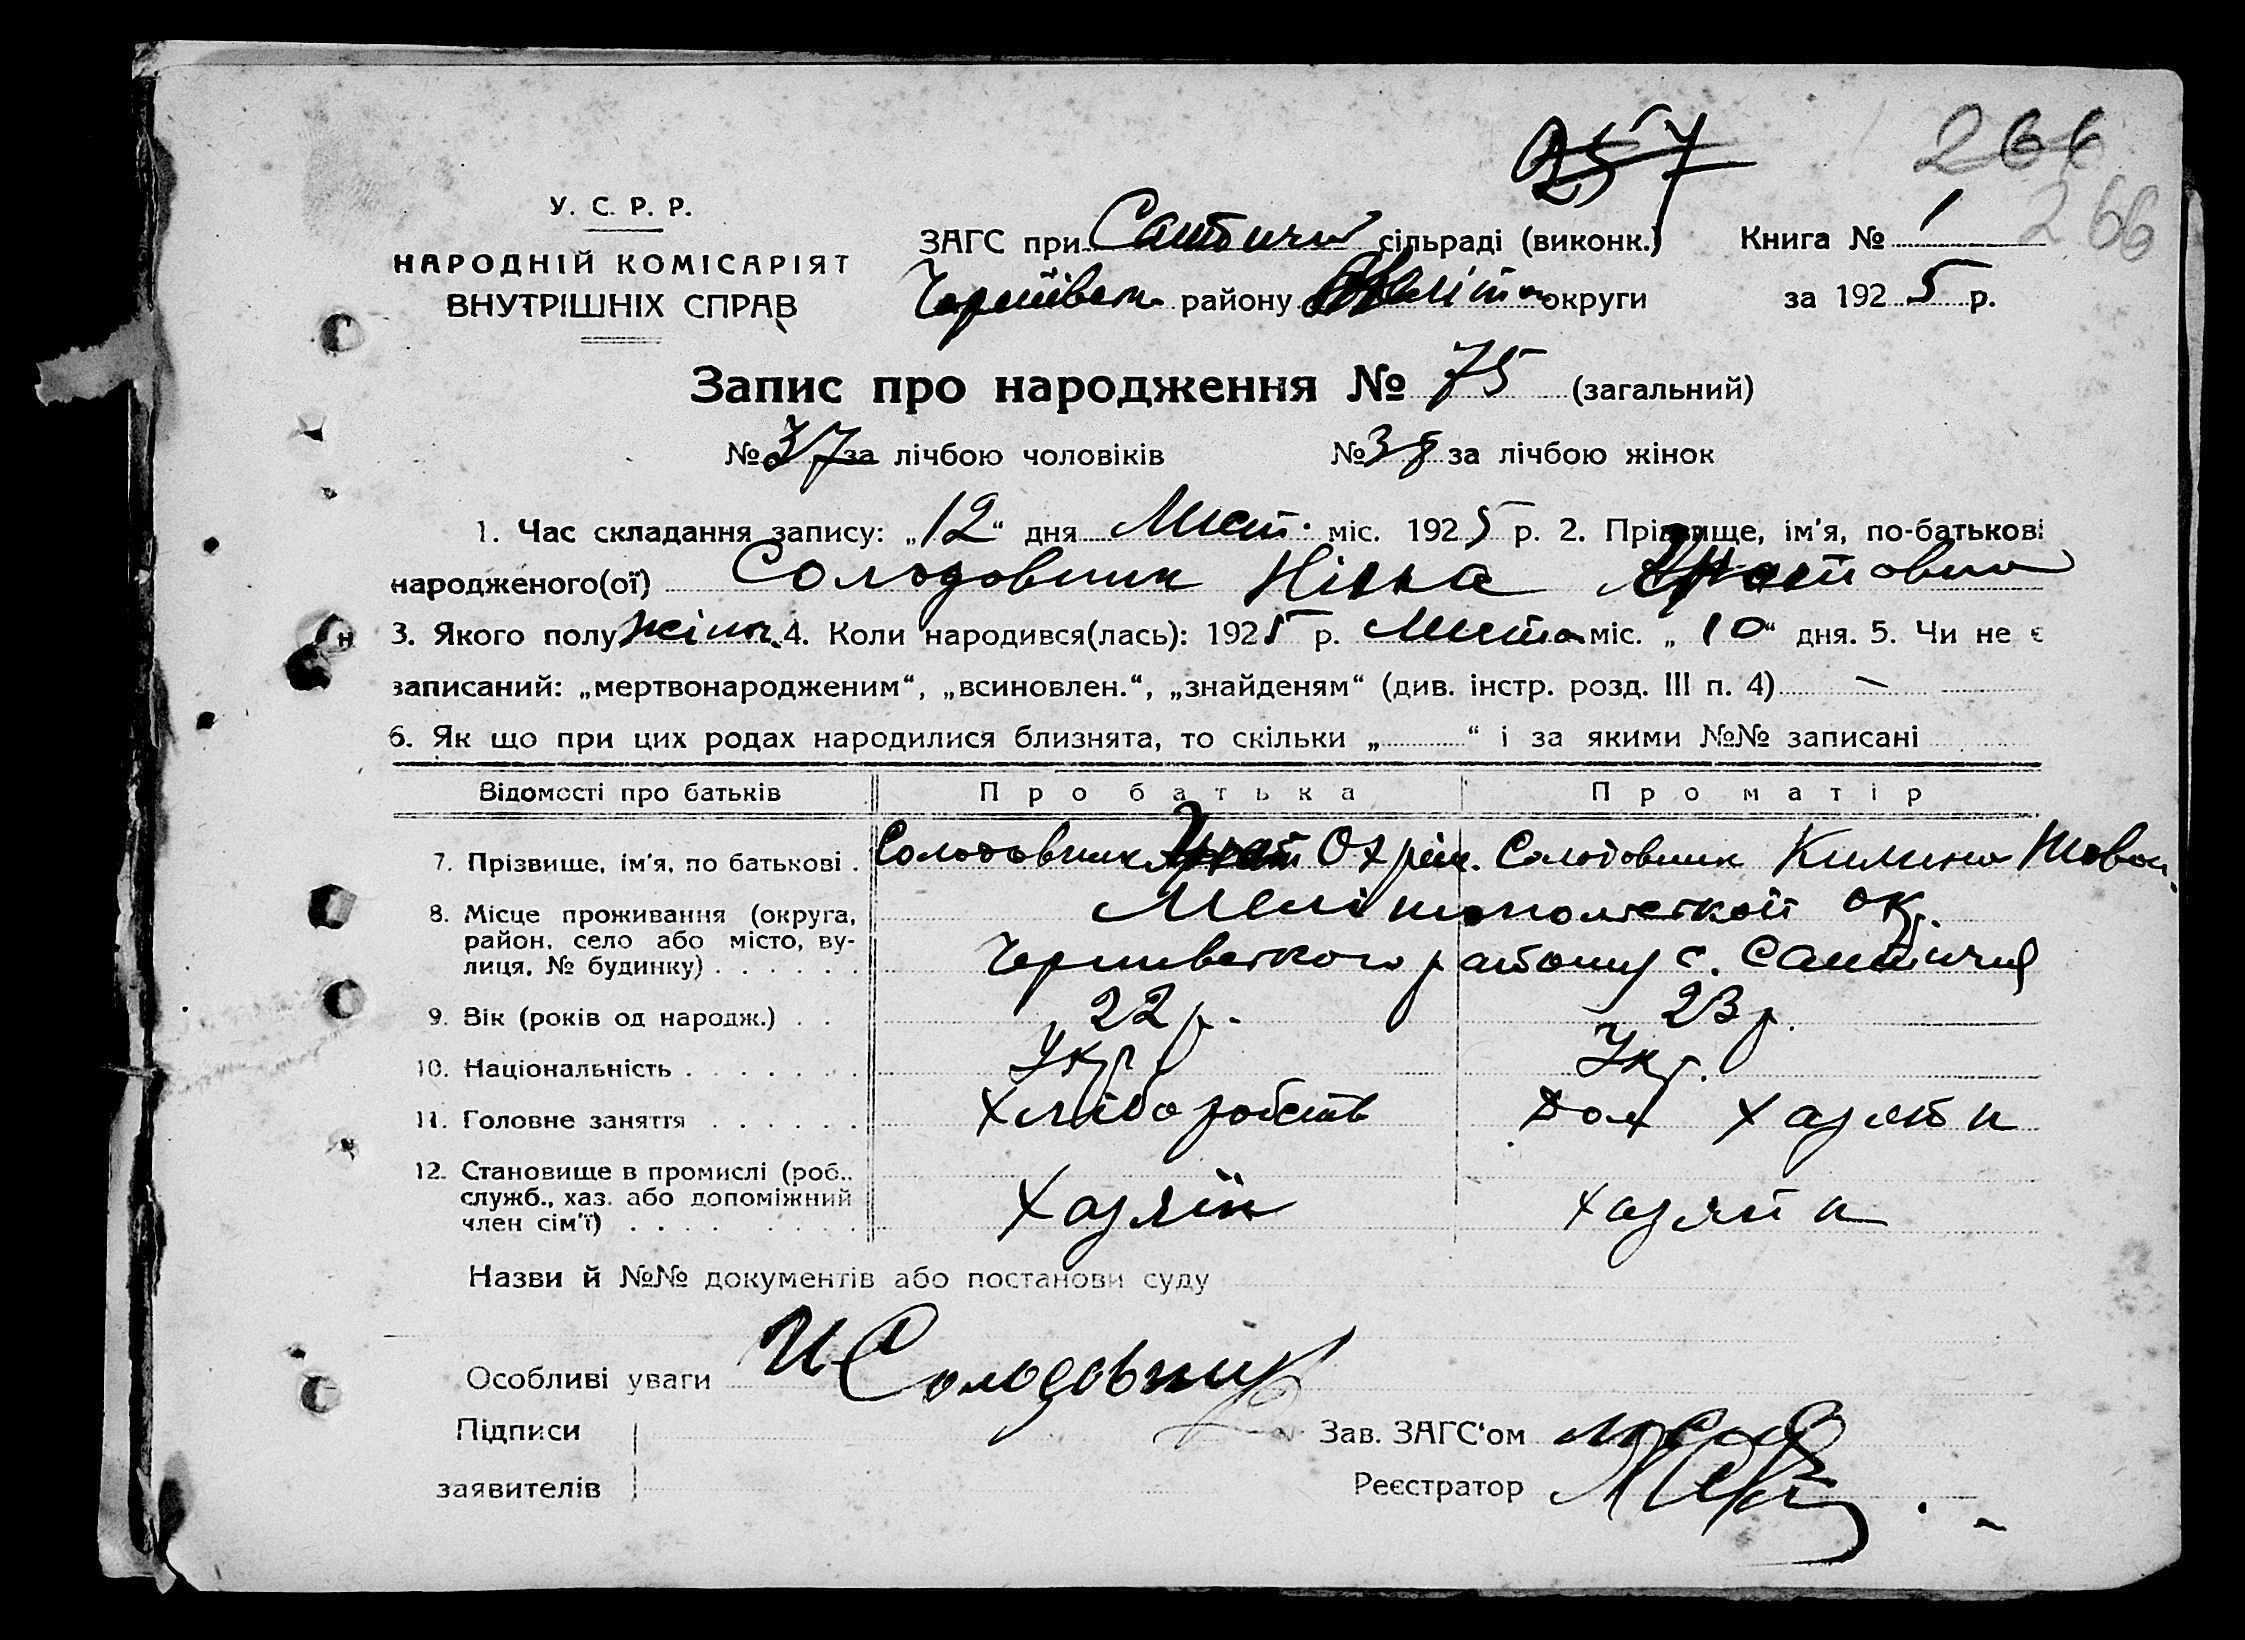 257
266
266
У. С. Р. Р.
НАРОДНІЙ КОМІСАРІЯТ
ВНУТРІШНІХ СПРАВ
ЗАГС при сільраді (виконк.) Книга № 1
району округи за 1925 р.
Запис про народження № 75 (загальний)
№ 37 за лічбою чоловіків № 38 за лічбою жінок
1. Час складання запису: „12“ дня Лист. міс. 1925 р. 2. Прізвище, ім'я, по-батькові
народженого(ої) Солодовник Нінка
3. Якого полу жіноч. 4. Коли народився(лась): 1925 р. Листоп міс. „10“ дня. 5. Чи не є
записаний: „мертвонародженим“, „всиновлен.“, „знайденям“ (див. інстр. розд. III п. 4) —
6. Як що при цих родах народилися близнята, то скільки „ “ і за якими №№ записані
Відомості про батьків Про батька Про матір
7. Прізвище, ім'я, по батькові . Солодовник Охрім. Солодовник Килина
8. Місце проживання (округа, Мелітопольської окр.
район, село або місто, ву-
лиця, № будинку) . . . . . . району с.
9. Вік (років од народж.) . . 22 р. 23 р.
10. Національність . . . . . . . Укр. Укр.
11. Головне заняття . . . . . . Хлібороб­ств Дом хазяйк
12. Становище в промислі (роб.,
служб., хаз. або допоміжний Хазяїн хазяйк
член сім'ї) . . . . . . . .
Назви й №№ документів або постанови суду
Особливі уваги И Солодовник
Підписи Зав. ЗАГС'ом
заявителів Реєстратор